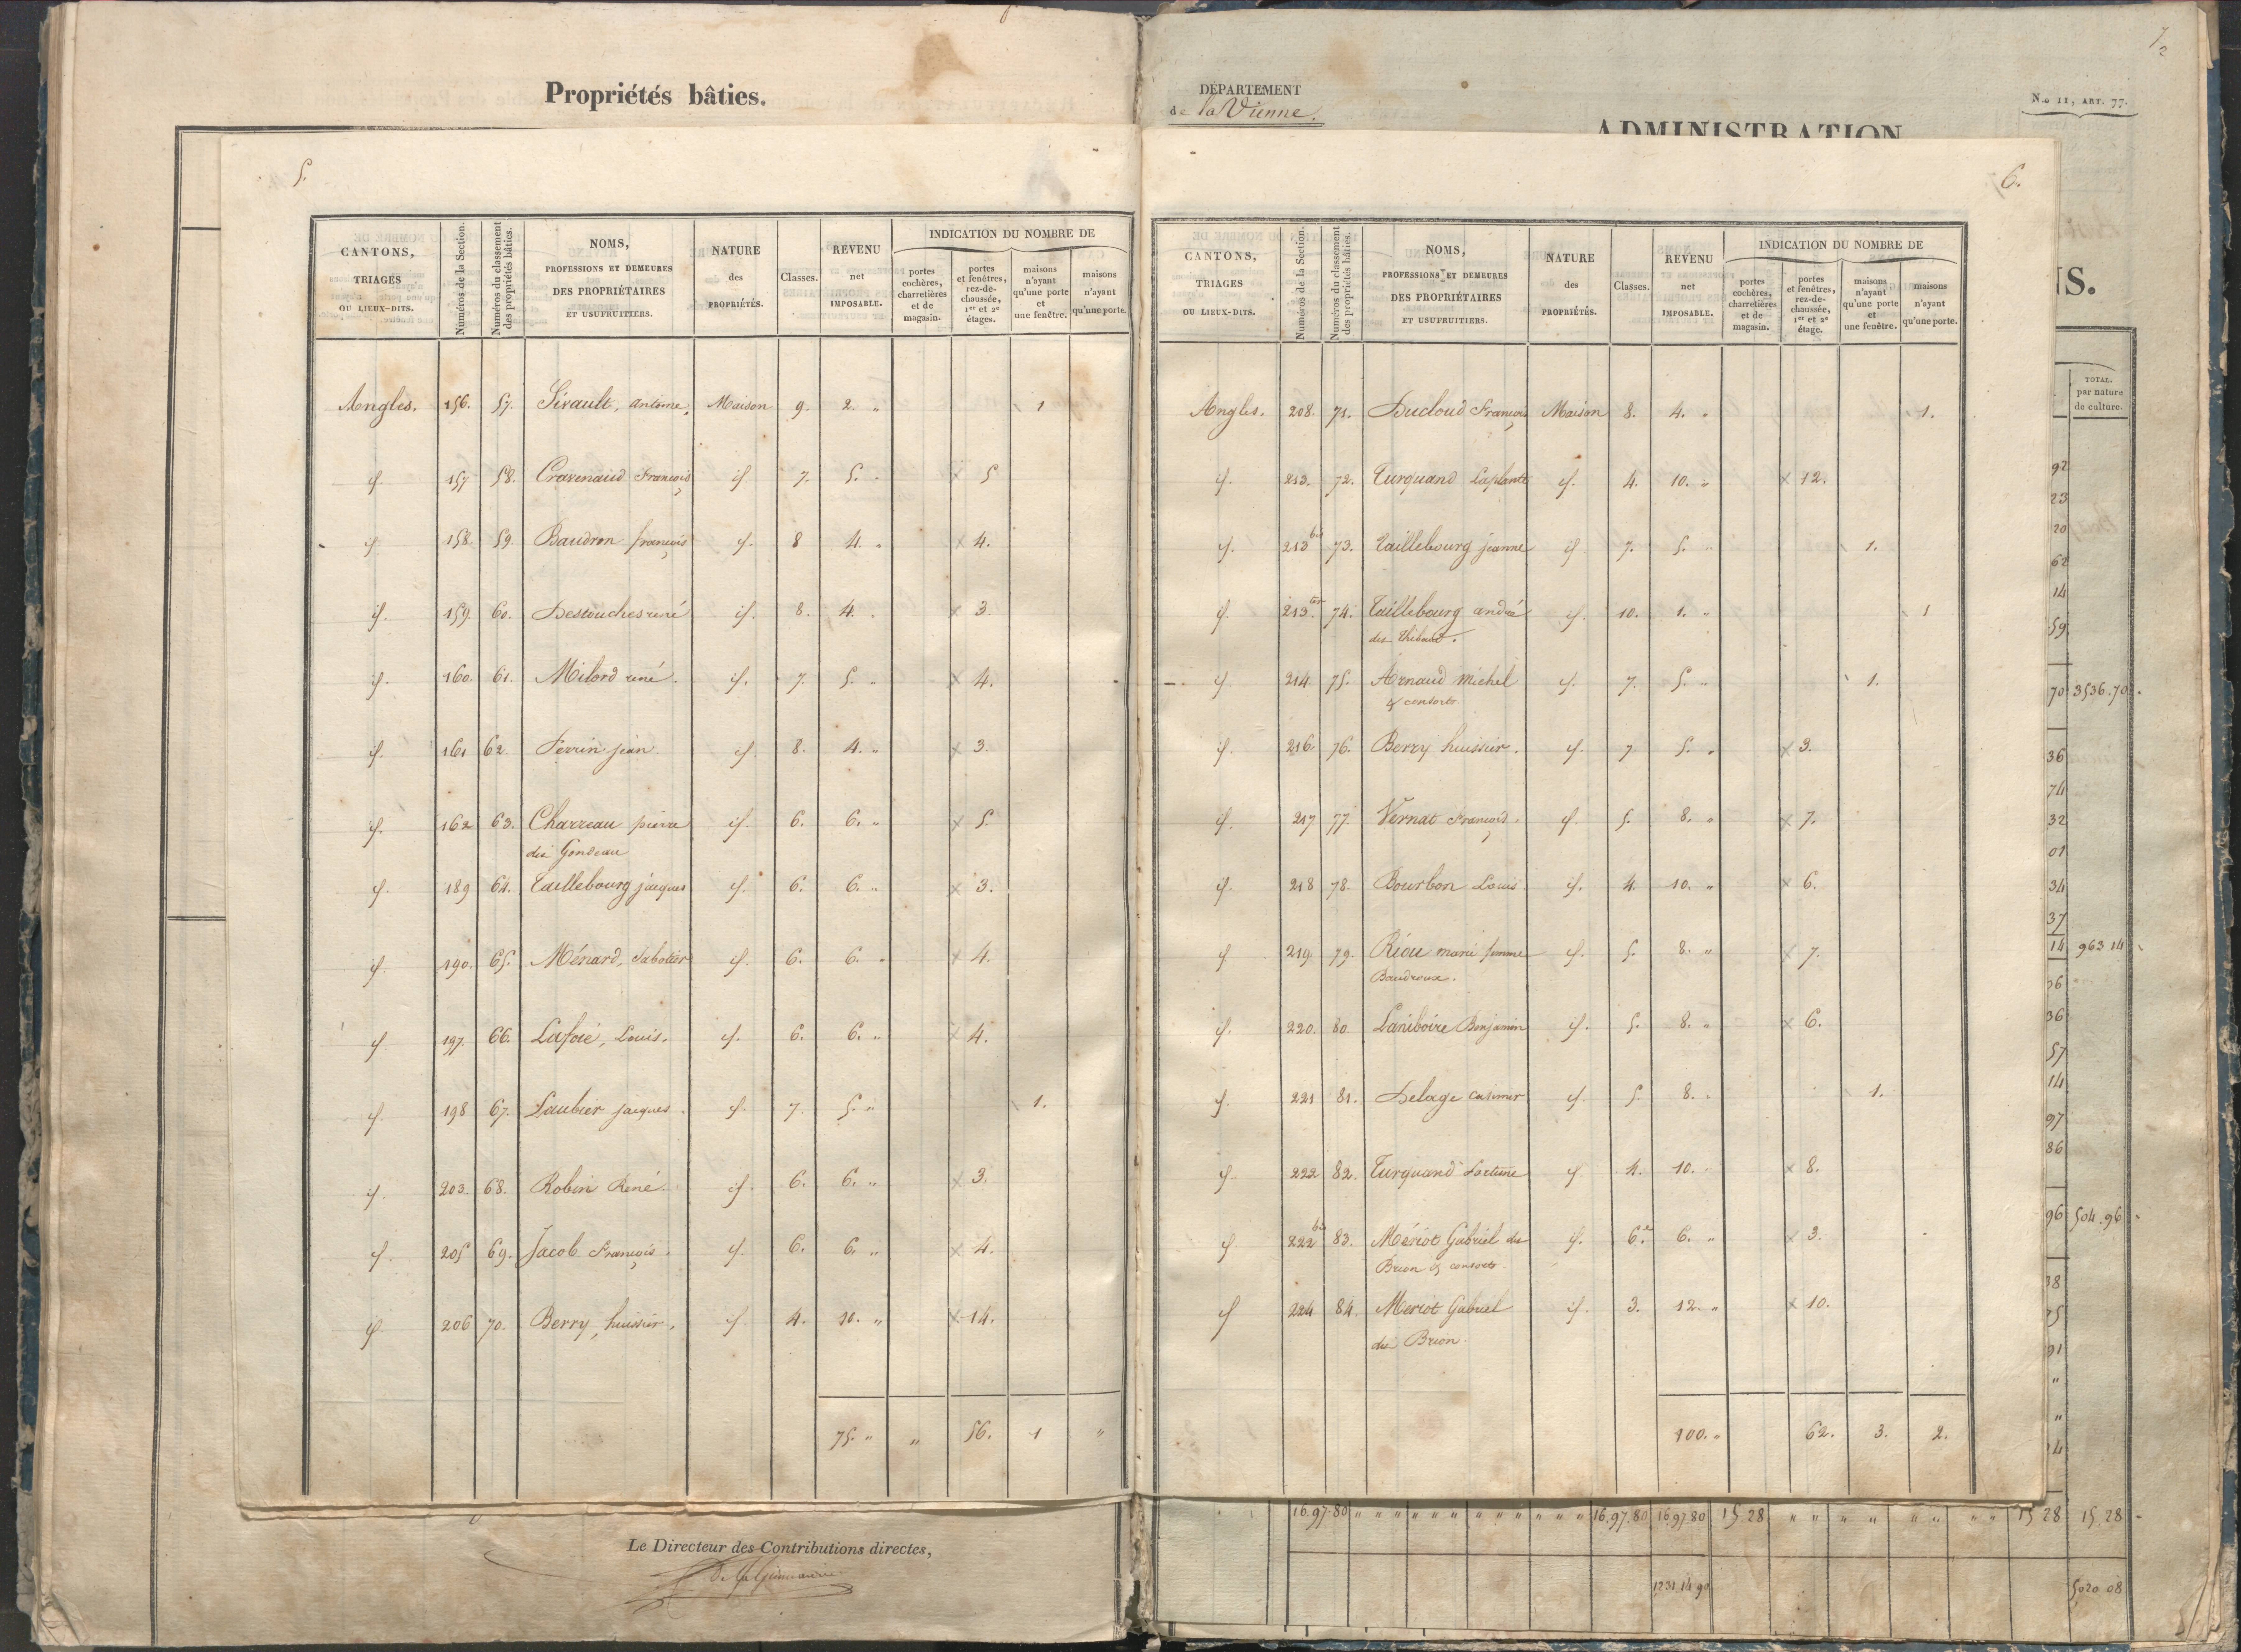 Propriétés bâties.
5.
CANTONS, TRIAGES OU LIEUX-DITS. | Numéros de la Section. | Numéros du classement des propriétés bâties. | NOMS, PROFESSIONS ET DEMEURES DES PROPRIÉTAIRES ET USUFRUITIERS. | NATURE des PROPRIÉTÉS. | Classes. | REVENU net IMPOSABLE. | INDICATION DU NOMBRE DE | portes cochères, charretières et de magasin. | portes et fenêtres, rez-de-chaussée, 1er et 2e étages. | maisons n'ayant qu'une porte et une fenêtre. | maisons n'ayant qu'une porte.
Angles. 156. 57. antoine, Maison 9. 2. " 1
id. 157 58. François id. 7. 5. " x 5
id. 158. 59. Baudron françois id. 8 4. " x 4.
id. 159. 60. Destouches rené id. 8. 4. " x 3.
id. 160. 61. Milord rené. id. 7. 5. " x 4.
id. 161 62. Perrin jean. id. 8. 4. " x 3.
id. 162 63. Charreau pierre id. 6. 6. " x 5.
dit Gondeau
id. 189 64. Taillebourg jacques id. 6. 6. " x 3.
id. 190. 65. Ménard, Sabotier id. 6. 6. " x 4.
id. 197. 66. Lafoie, Louis. id. 6. 6. " x 4.
id. 198 67. Laubier jacques. id. 7. 5. " 1.
id. 203. 68. Robin René. id. 6. 6. " x 3.
id. 205 69. Jacob François. id. 6. 6. " x 4.
id. 206 70. Berry, huissier, id. 4. 10. " x 14.
75. " " 56. 1 "
Le Directeur des Contributions directes,
DÉPARTEMENT
de la Vienne.
ADMINISTRATION
N.o 11, ART. 77.
7
2
6.
CANTONS, TRIAGES OU LIEUX-DITS. | Numéros de la Section. | Numéros du classement des propriétés bâties. | NOMS, PROFESSIONS ET DEMEURES DES PROPRIÉTAIRES ET USUFRUITIERS. | NATURE des PROPRIÉTÉS. | Classes. | REVENU net IMPOSABLE. | INDICATION DU NOMBRE DE | portes cochères, charretières et de magasin. | portes et fenêtres, rez-de-chaussée, 1er et 2e étage. | maisons n'ayant qu'une porte et une fenêtre. | maisons n'ayant qu'une porte.
Angles. 208. 71. Ducloud François Maison 8. 4. " 1.
id. 213. 72. Turquand Laplante id. 4. 10. " x 12.
id. 213 bis 73. Taillebourg jeanne id. 7. 5. " 1.
id. 213 ter 74. Taillebourg andré id. 10. 1. " 1
des Thibaut.
id. 214. 75. Arnaud Michel id. 7. 5. " 1.
& consorts
id. 216. 76. Berry huissier. id. 7 5. " x 3.
id. 217 77. Vernat François. id. 5. 8. " x 7.
id. 218 78. Bourbon Louis. id. 4. 10. " x 6.
id. 219 79. Riou marie femme id. 5. 8. " x 7.
id. 220. 80. Laniboire Benjamin id. 5. 8. " x 6.
id. 221 81. Delage Casimir id. 5. 8. " 1.
id. 222 82. Turquand Fortuné id. 4. 10. " x 8.
id. 222 bis 83. Mériot Gabriel de id. 6.e 6. " x 3.
Brion & consorts
id. 224 84. Meriot Gabriel id. 3. 12. " x 10.
de Brion.
100. " 62. 3. 2.
IS.
TOTAL.
par nature
de culture.
92
23
20
62
14
59
70 3536.70
36
74
32
01
34
37
14 963 14
36
57
14
97
86
96 504.96
16.97.80 " " " " " " " " " " " " 16.97.80 16.97.80 15.28 " " " " " " " " 15 28 15.28
1231.14.90 5020 08